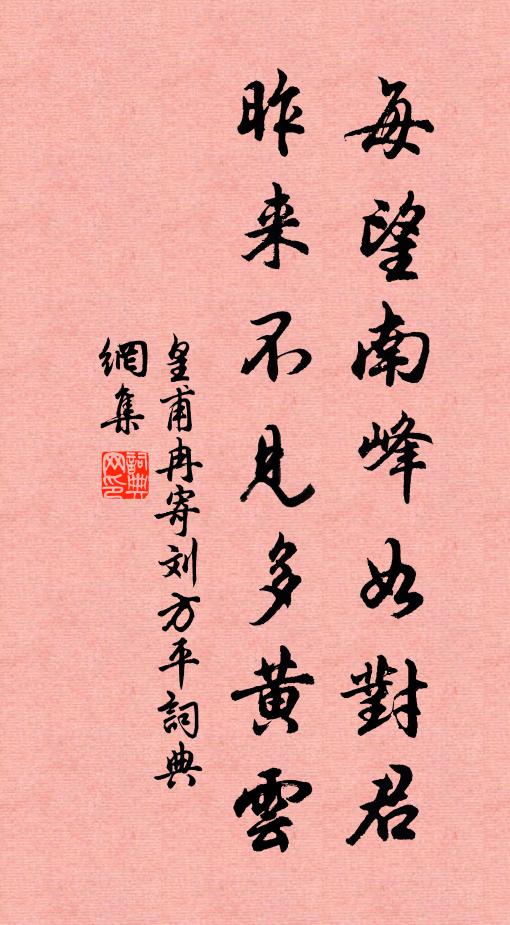 每望南峰如對君
昨来不見多黄雲
皇甫冉寄刘方平詞典
網集
詞典
网印